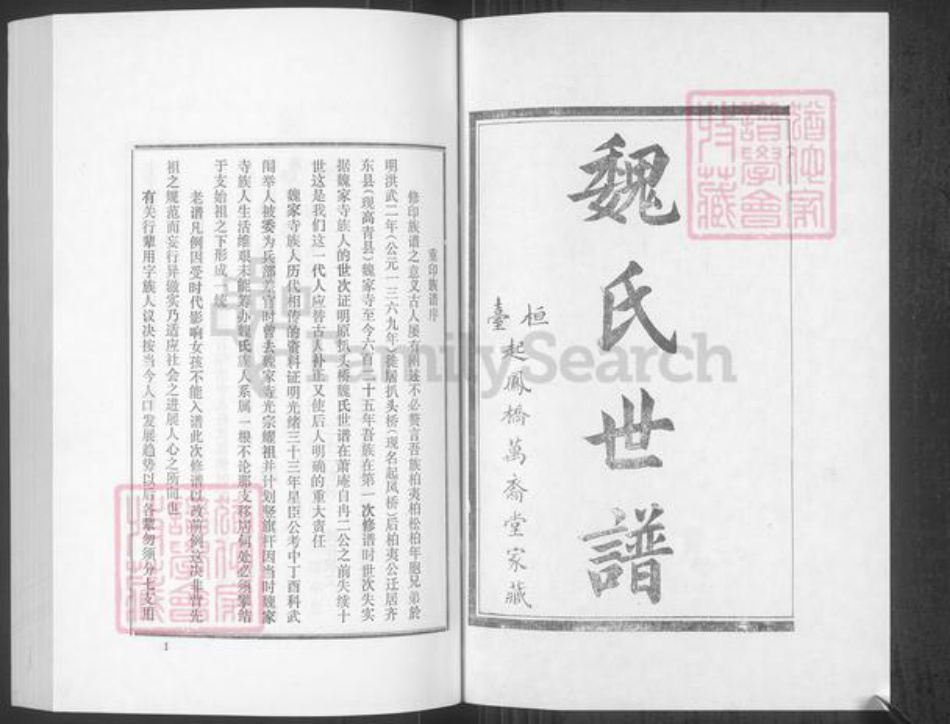 魏氏世譜
桓臺起鳳橋萬斋堂家藏
重印族谱序
修印族谱之意义古人屡有阐述不必赘言吾族柏夷柏松柏年胞兄弟於
明洪武二年(公元一三六九年)徙居扒头桥(现名起凤桥)后柏夷公迁居齐
东县(现高青县)魏家寺至今六百二十五年吾族在第一次修谱时世次失实
据魏家寺族人的世次证明原扒头桥魏氏世谱在萧庵自冉二公之前失续十
世这是我们这一代人应替古人补正又使后人明确的重大责任
魏家寺族人历代相传的资料证明光绪三十三年星臣公考中丁酉科武
闱举人被委为兵部差官时曾去魏家寺光宗耀祖并计划竖旗杆因当时魏家
寺族人生活维艰未能筹办魏氏族人系属一根不论那支移居何处必须挈结
于支始祖之下形成一统
老谱凡例因受时代影响女孩不能入谱此次修谱以改前例这决非背先
祖之规范而妄行异辙实乃适应社会之进展人心之所向也
有关行辈用字族人议决按当今人口发展趋势以后各辈勿须分七支用
1
FamilySearch